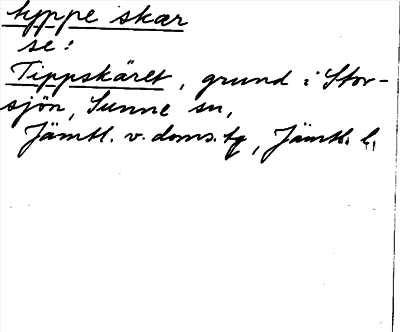 typpe skær
se:
Tippskäret, grund i Stor-
sjön, Sunne sn,
Jämtl. v. doms. tg, Jämtl. l.